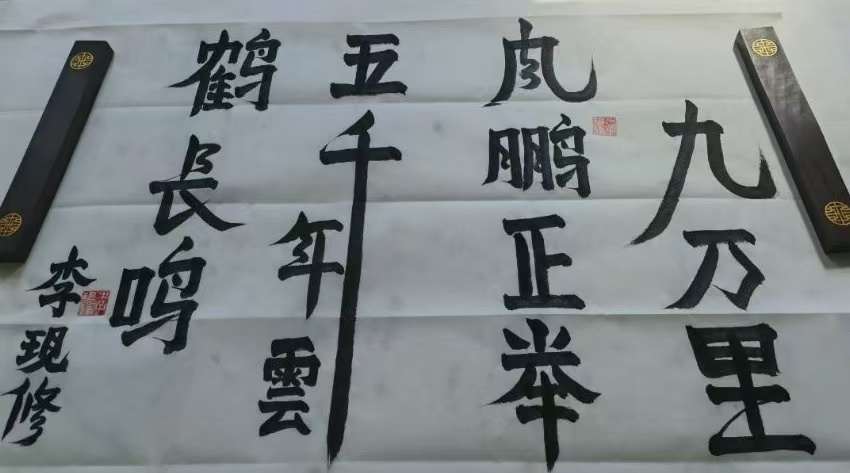 九万里
风鹏正举
五千年雲
鹤长鸣
李现修